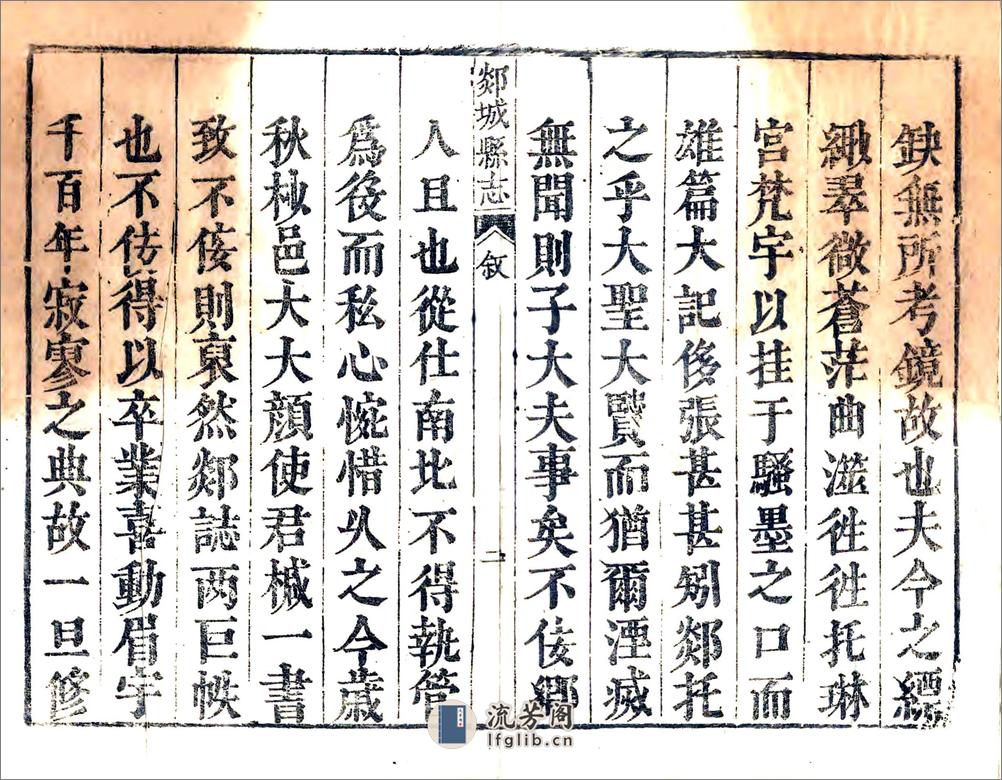 缺無所考鏡故也夫今之縹
緗翠微蒼茫曲澨徃徃托琳
宮梵宇以挂于騷墨之口而
雄篇大記侈張甚甚矧郯托
之乎大聖大賢而猶爾湮滅
無聞則子大夫事矣不佞郷
郯城縣志
敘
二
人且也從仕南北不得執管
爲役而私心惋惜乆之今歲
秋杪邑大大顔使君械一書
致不佞則裒然郯誌两巨帙
也不佞得以卒業喜動眉宇
千百年寂寥之典故一旦修
流芳阁
lfglib.cn